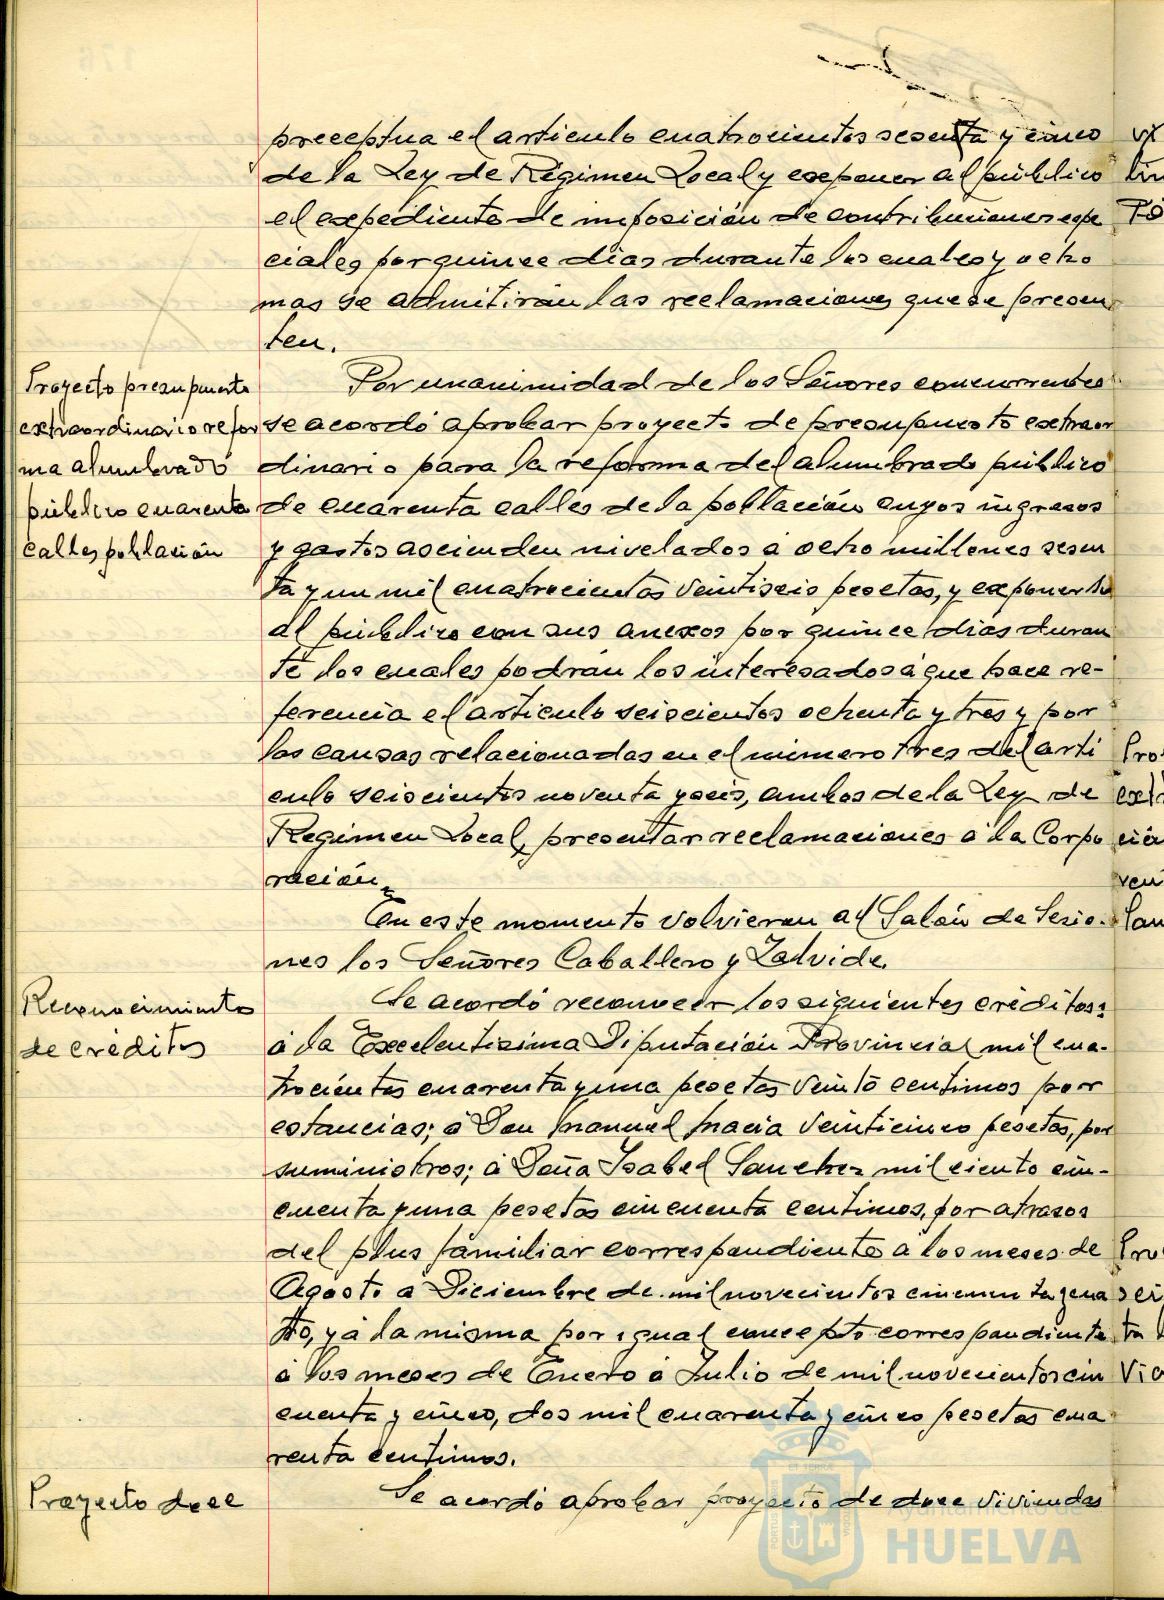 preceptua el articulo cuatrocientos sesenta y cinco
de la Ley de Régimen Local y exponer al público
el expediente de imposición de contribuciones espe
ciales por quince dias durante los cuales y ocho
mas se admitirán las reclamaciones que se presen
ten.
Proyecto presupuesto
extraordinario refor
ma alumbrado
público cuarenta
calles población
Por unanimidad de los Señores concurrentes
se acordó aprobar proyecto de presupuesto extraor
dinario para la reforma del alumbrado público
de cuarenta calles de la población cuyos ingresos
y gastos ascienden nivelados á ocho millones sesen
ta y un mil cuatrocientas veintiseis pesetas, y exponerlo
al público con sus anexos por quince dias duran
te los cuales podrán los interesados á que hace re-
ferencia el articulo seiscientos ochenta y tres y por
las causas relacionadas en el número tres del arti
culo seiscientos noventa y seis, ambos de la Ley de
Regimen Local, presentar reclamaciones á la Corpo
ración.
En este momento volvieron al Salón de Sesio-
nes los Señores Caballero y Zalvide.
Reconocimiento
de créditos
Se acordó reconocer los siguientes créditos:
á la Excelentisima Diputación Provincial mil cua-
trocientas cuarenta y una pesetas veinte centimos por
estancias; á Don Manuel Macia veinticinco pesetas, por
suministros; á Doña Isabel Sanchez mil ciento cin-
cuenta y una pesetas cincuenta centimos, por atrasos
del plus familiar correspondiente á los meses de
Agosto á Diciembre de mil novecientos cincuenta y cua
tro, y á la misma por igual concepto correspondiente
á los meses de Enero á Julio de mil novecientos cin
cuenta y cinco, dos mil cuarenta y cinco pesetas cua
renta centimos.
Proyecto doce
Se acordó aprobar proyecto de doce viviendas
Ayuntamiento de
HUELVA